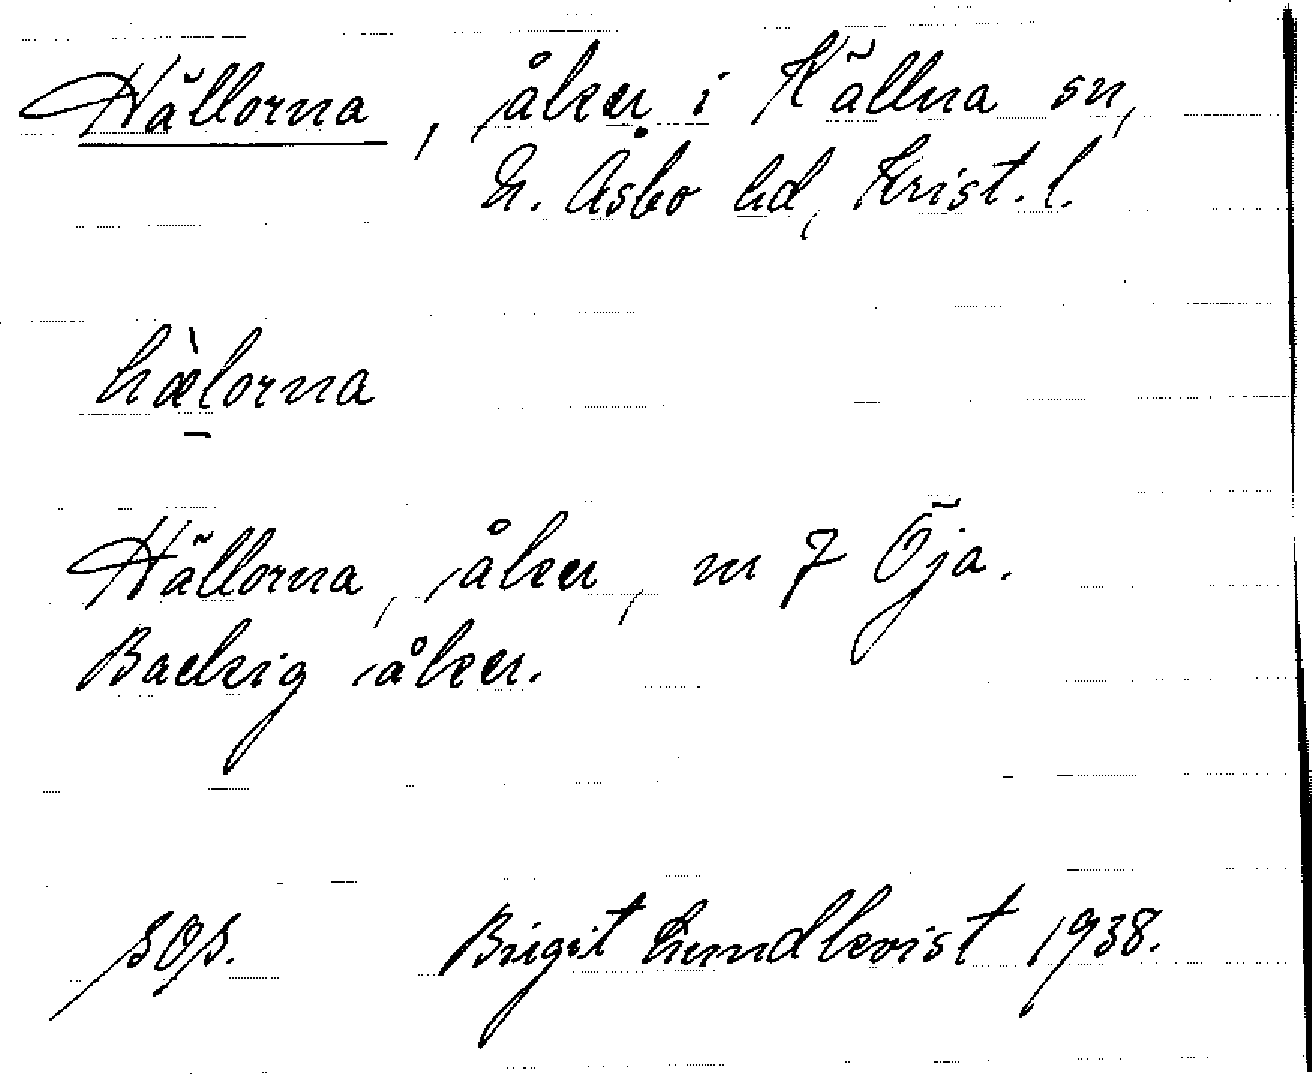 Hällorna, åker i Källna sn,
N. Åsbo hd, Krist. l.
hæ̀lorna
Hällorna, åker, m 7 Öja.
Backig åker.
sop.
Birgit Lundkvist 1938.